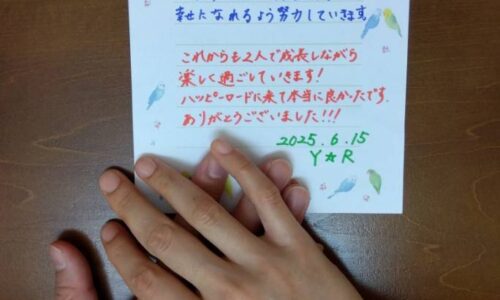 幸せになれるよう努力していきます
これからも2人で成長しながら
楽しく過ごしていきます!
ハッピーロードに来て本当に良かったです。
ありがとうございました!!!
2025.6.15
Y☆R